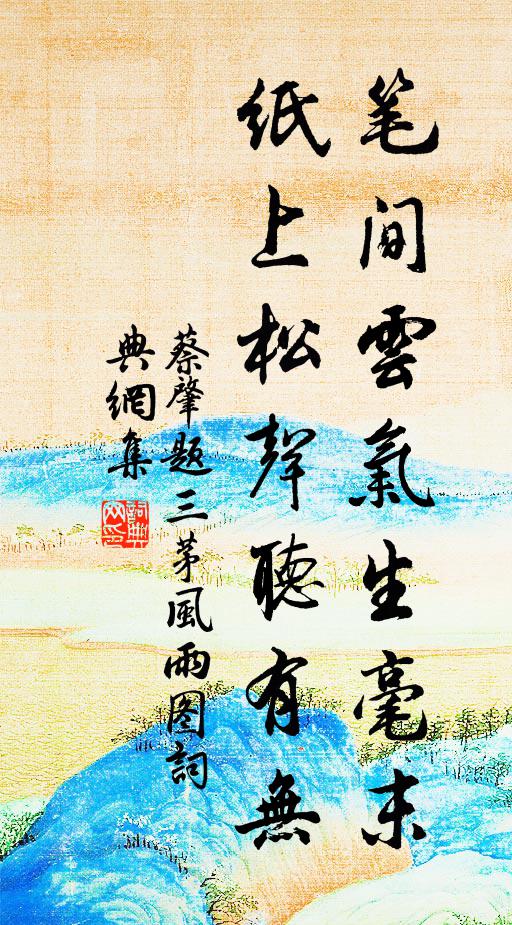 笔间雲氣生毫末
纸上松聲聽有無
蔡肇题三茅風雨图詞
典網集
詞典
网印